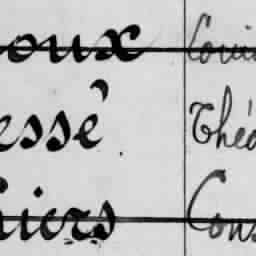 oux Coui
essé Théo
hiers Cons